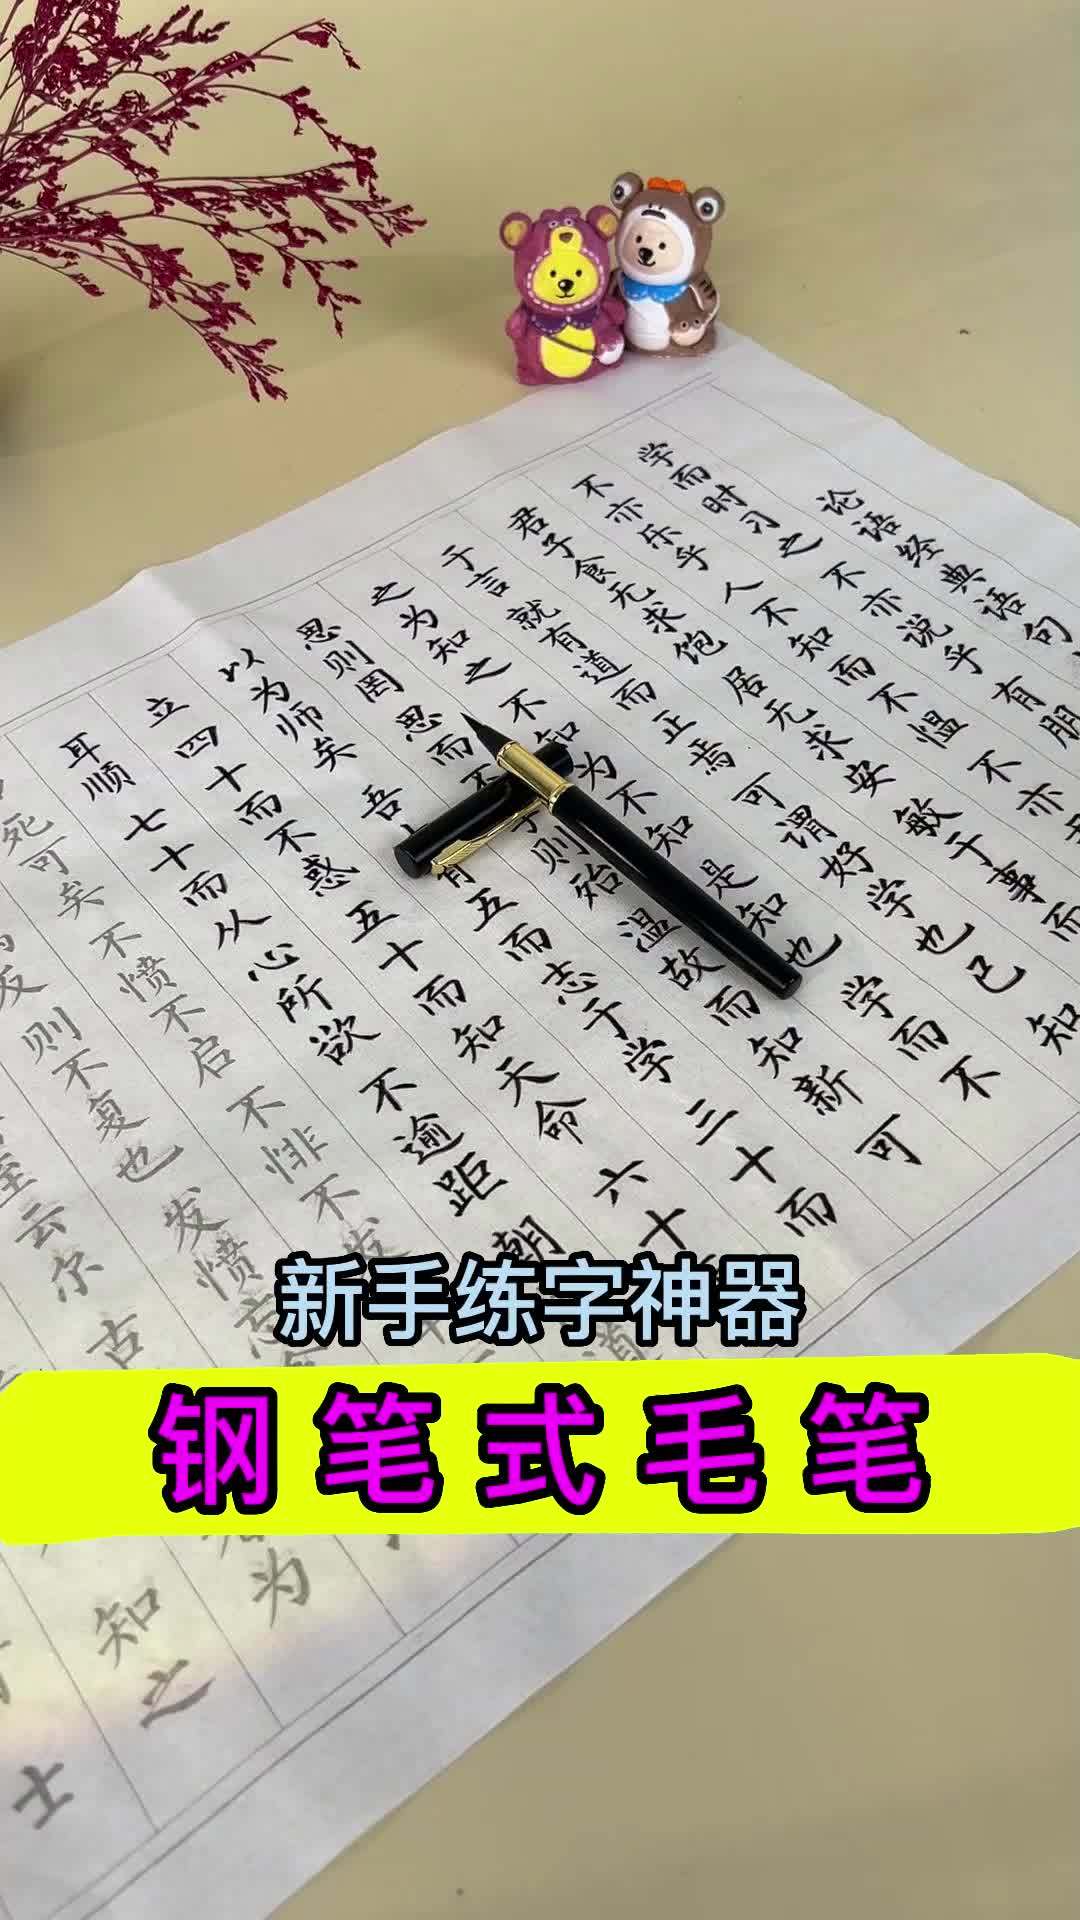 论语经典语句
学而时习之 不亦说乎 有朋
不亦乐乎 人不知而不愠 不亦
君子食无求饱 居无求安 敏于事而
于言 就有道而正焉 可谓好学也已 知
之为知之 不知为不知 是知也 学而不
思则罔 思而不 则殆 温故而知新 可
以为师矣 吾 有五而志于学 三十而
立 四十而不惑 五十而知天命 六十
耳顺 七十而从心所欲 不逾距 朝
死可矣 不愤不启 不悱不发 道
则不复也 发愤忘
云尔 古
为
知之
士
新手练字神器
钢笔式毛笔